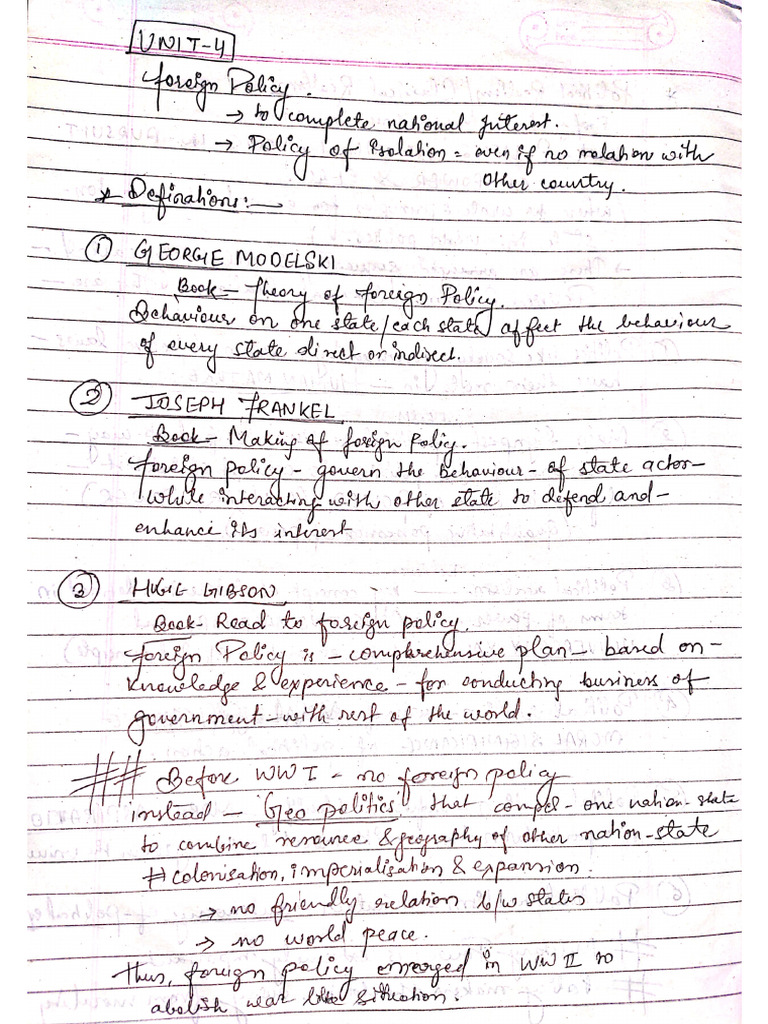 UNIT-4
Foreign Policy.
→ to complete national Interest.
→ Policy of Isolation = even if no relation with
other country.
* Definations:—
① GEORGIE MODELSKI
Book - Theory of Foreign Policy.
Behaviour on one state/each state affect the behaviour
of every state direct or indirect.
② JOSEPH FRANKEL
Book - Making of foreign Policy.
foreign policy - govern the behaviour - of state actor-
while interacting with other state to defend and-
enhance its interest
③ HUGIE GIBSON
Book- Read to foreign policy.
foreign Policy is - comprehensive plan - based on-
knowledge & experience - for conducting business of
government - with rest of the world.
## Before WW I - no foreign policy
instead - 'Geo politics' that compel - one nation-state
to combine resource & geography of other nation-state
# colonisation, imperialisation & expansion.
→ no friendly relation b/w states
→ no world peace.
Thus, foreign policy emerged in WW II to
abolish war like situation.